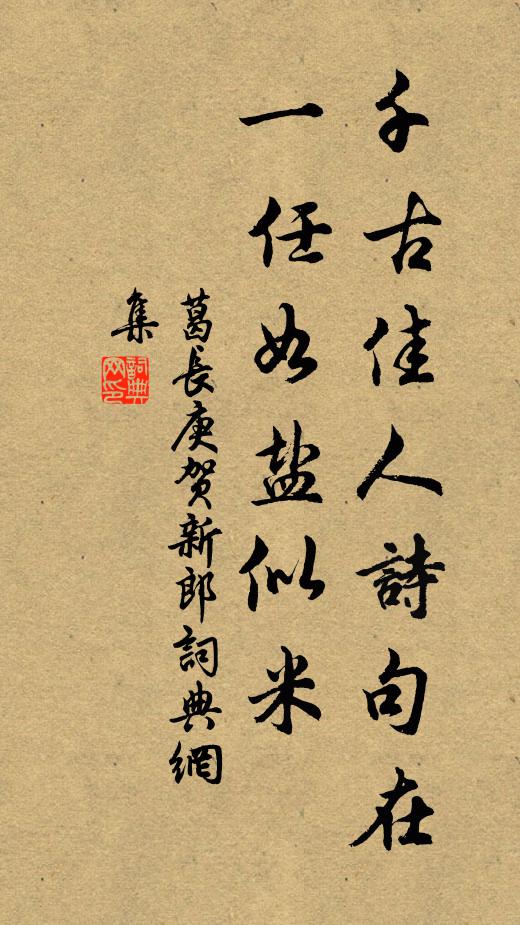 千古佳人詩句在
一任如盐似米
葛長庚贺新郎詞典網
集
詞典
网印